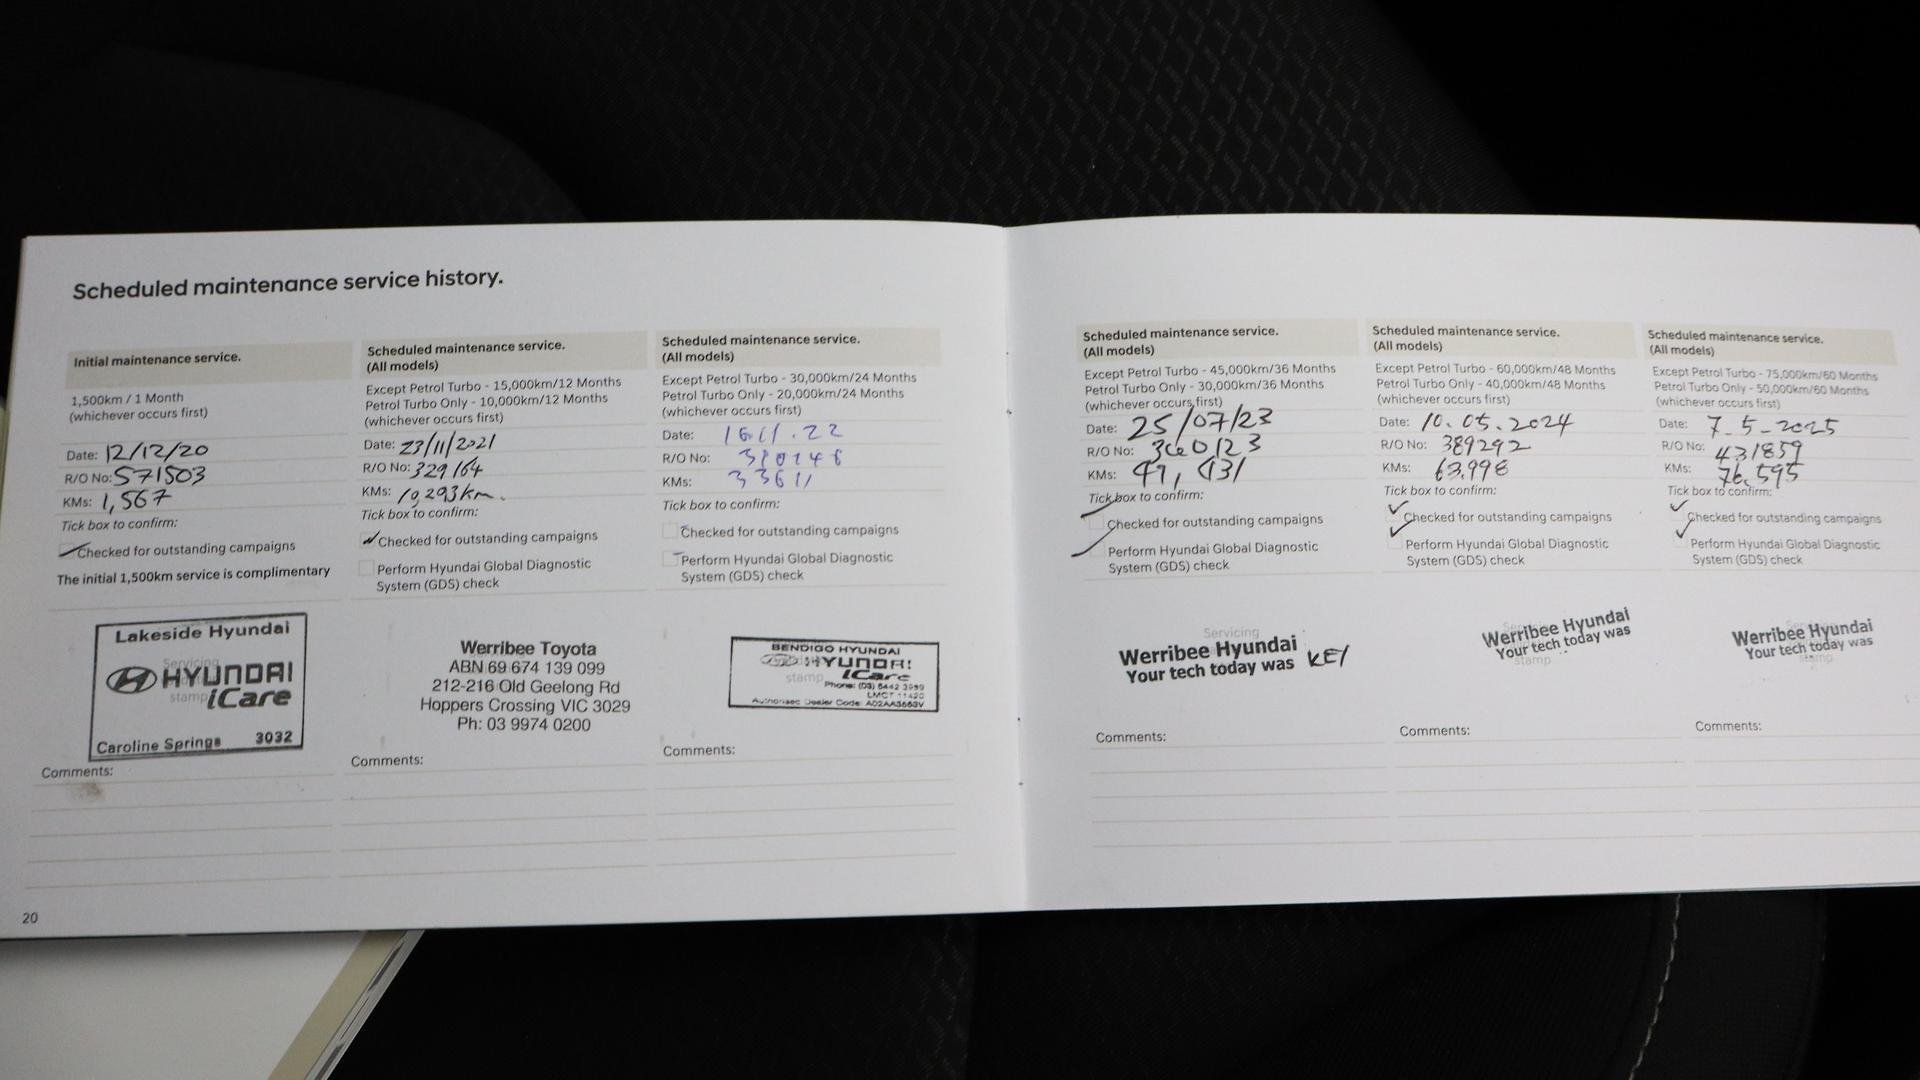 Scheduled maintenance service history.
Initial maintenance service.
1,500km / 1 Month
(whichever occurs first)
Date: 12/12/20
R/O No: 571503
KMs: 1,567
Tick box to confirm:
Checked for outstanding campaigns
The initial 1,500km service is complimentary
Lakeside Hyundai
Servicing
HYUNDAI
stamp iCare
Caroline Springs 3032
Comments:
Scheduled maintenance service.
(All models)
Except Petrol Turbo - 15,000km/12 Months
Petrol Turbo Only - 10,000km/12 Months
(whichever occurs first)
Date: 23/11/2021
R/O No: 329164
KMs: 10,293km.
Tick box to confirm:
Checked for outstanding campaigns
Perform Hyundai Global Diagnostic
System (GDS) check
Werribee Toyota
ABN 69 674 139 099
212-216 Old Geelong Rd
Hoppers Crossing VIC 3029
Ph: 03 9974 0200
Comments:
Scheduled maintenance service.
(All models)
Except Petrol Turbo - 30,000km/24 Months
Petrol Turbo Only - 20,000km/24 Months
(whichever occurs first)
Date:
R/O No:
KMs: 33611
Tick box to confirm:
Checked for outstanding campaigns
Perform Hyundai Global Diagnostic
System (GDS) check
BENDIGO HYUNDAI
HYUNDAI
stamp iCare
Phone: (03) 5442 3999
LMCT 11420
Authorised Dealer Code:
Comments:
20
Scheduled maintenance service.
(All models)
Except Petrol Turbo - 45,000km/36 Months
Petrol Turbo Only - 30,000km/36 Months
(whichever occurs first)
Date: 25/07/23
R/O No: 360123
KMs:
Tick box to confirm:
Checked for outstanding campaigns
Perform Hyundai Global Diagnostic
System (GDS) check
Servicing
Werribee Hyundai
Your tech today was KEV
Comments:
Scheduled maintenance service.
(All models)
Except Petrol Turbo - 60,000km/48 Months
Petrol Turbo Only - 40,000km/48 Months
(whichever occurs first)
Date: 10.05.2024
R/O No: 389292
KMs: 63.998
Tick box to confirm:
Checked for outstanding campaigns
Perform Hyundai Global Diagnostic
System (GDS) check
Servicing
Werribee Hyundai
Your tech today was
stamp
Comments:
Scheduled maintenance service.
(All models)
Except Petrol Turbo - 75,000km/60 Months
Petrol Turbo Only - 50,000km/60 Months
(whichever occurs first)
Date: 7-5-2025
R/O No: 431859
KMs: 76.595
Tick box to confirm:
Checked for outstanding campaigns
Perform Hyundai Global Diagnostic
System (GDS) check
Servicing
Werribee Hyundai
Your tech today was
stamp
Comments: